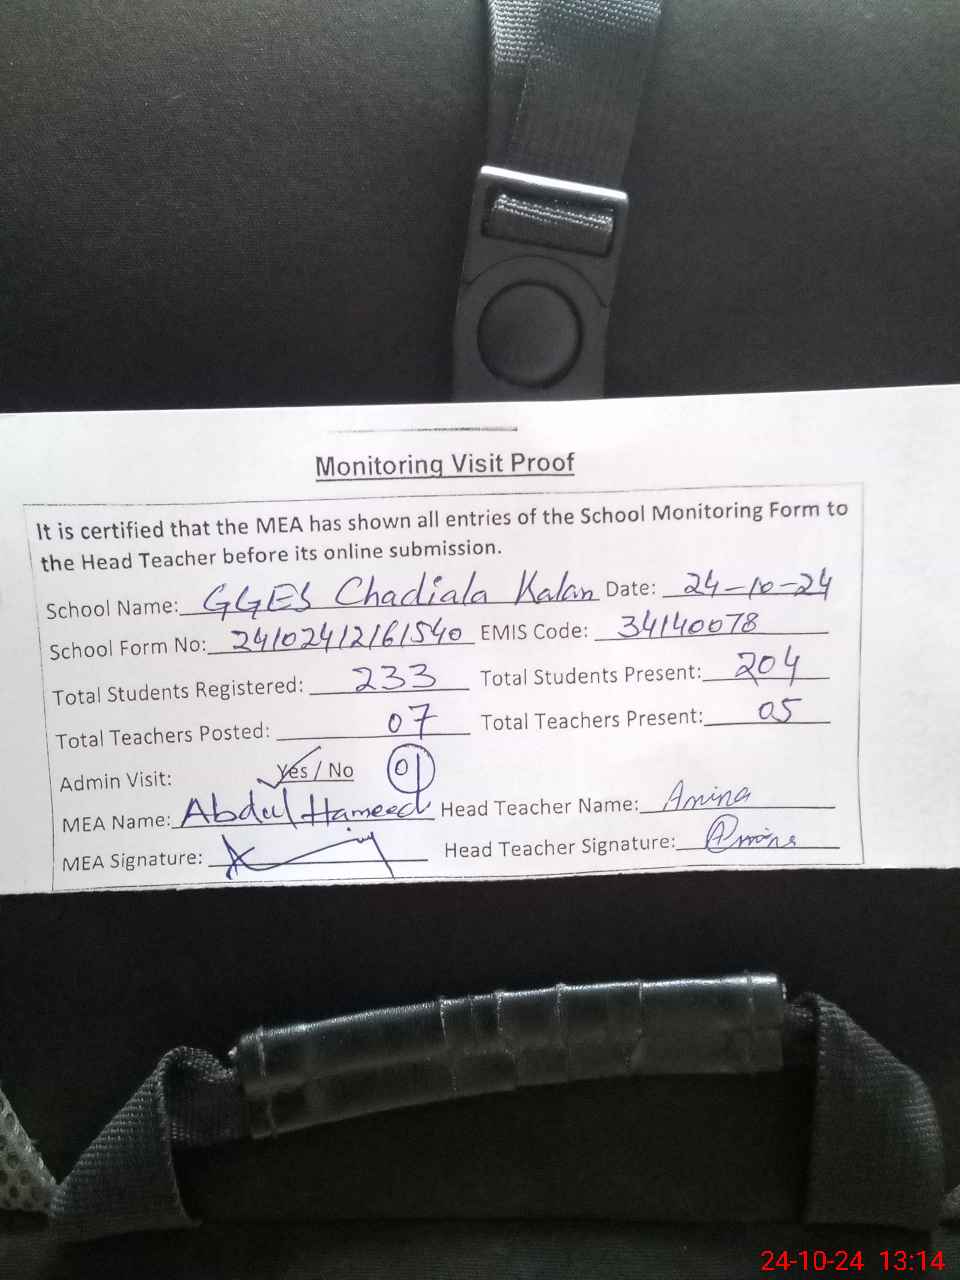 Monitoring Visit Proof
It is certified that the MEA has shown all entries of the School Monitoring Form to
the Head Teacher before its online submission.
School Name: GGES Chadiala Kalan Date: 24-10-24
School Form No: 24102412161540 EMIS Code: 34140078
Total Students Registered: 233 Total Students Present: 204
Total Teachers Posted: 07 Total Teachers Present: 05
Admin Visit: Yes / No 01
MEA Name: Abdul Hameed Head Teacher Name: Amina
MEA Signature: Head Teacher Signature: Amina
24-10-24 13:14